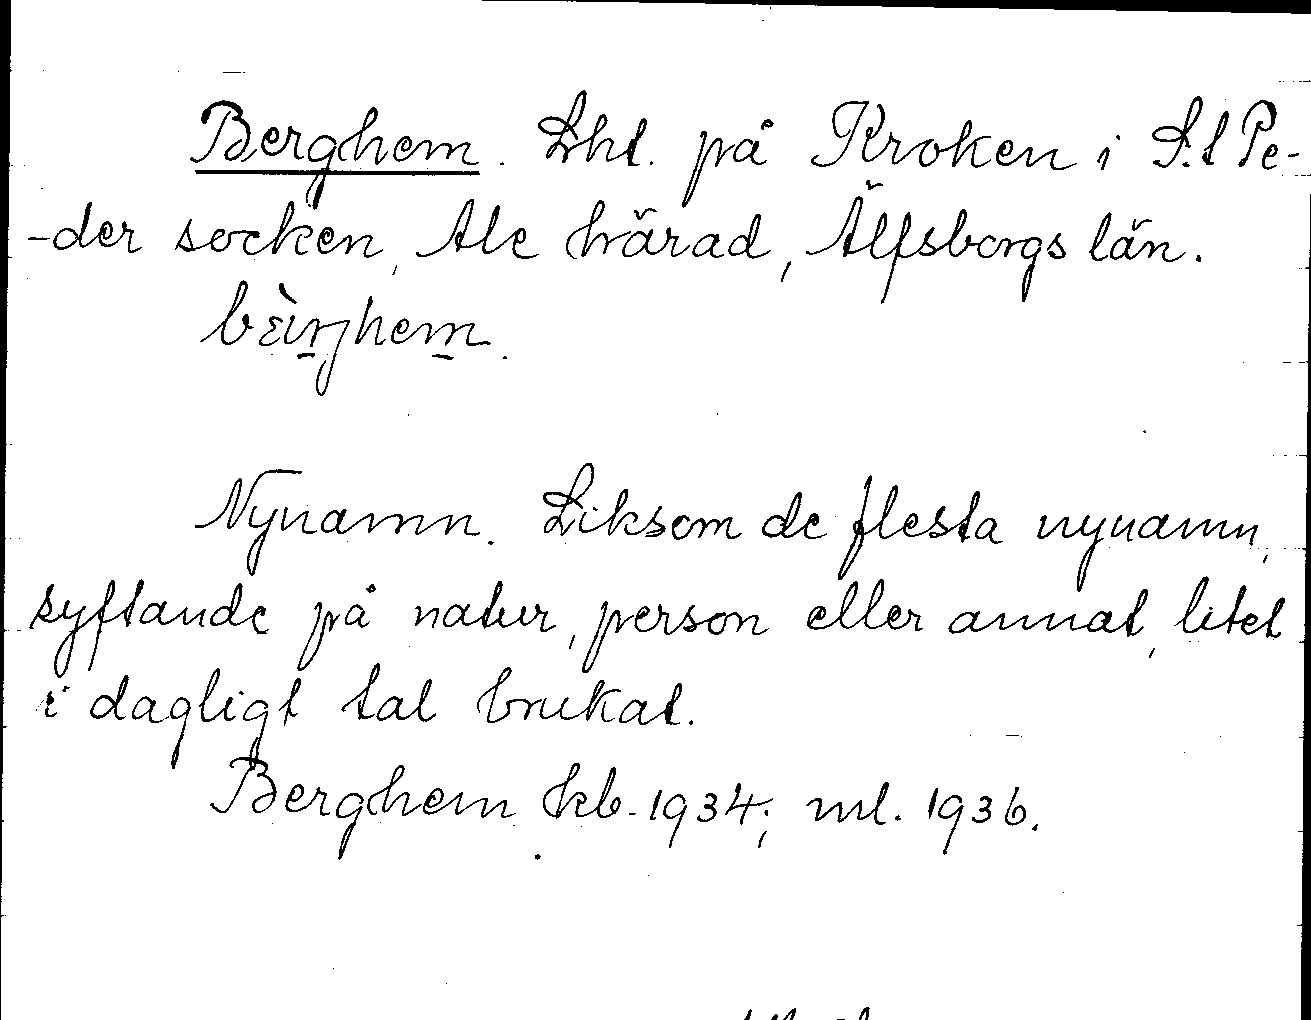 Berghem. Lht. på Kroken i S:t Pe-
-der socken, Ale härad, Älfsborgs län.
Nynamn. Liksom de flesta nynamn,
syftande på natur, person eller annat, litet
i dagligt tal brukat.
Berghem kb. 1934; ml. 1936.